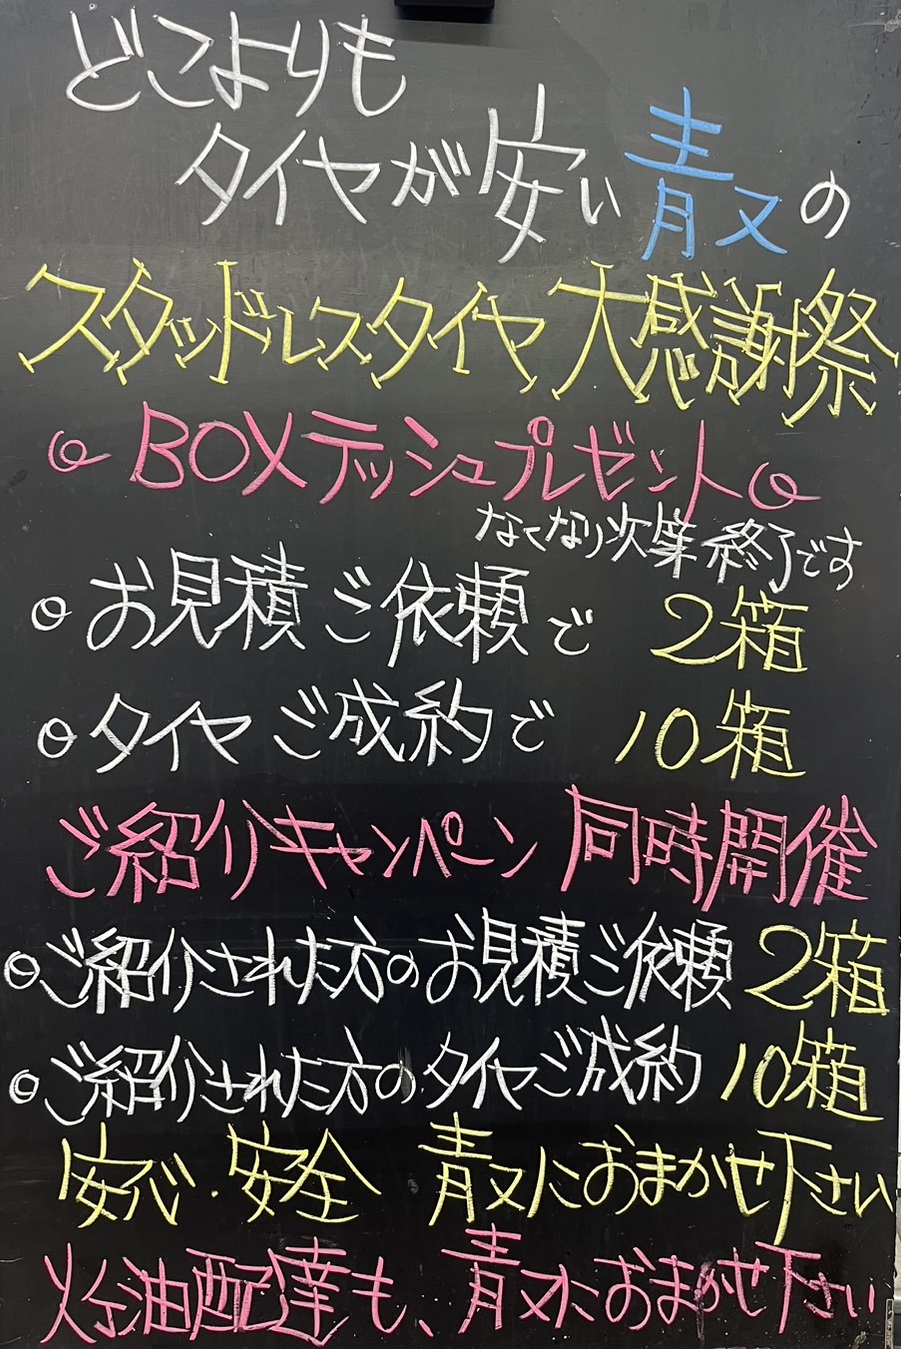 どこよりも
タイヤが安い青又の
スタッドレスタイヤ大感謝祭
BOXテッシュプレゼント
なくなり次第終了です
お見積ご依頼で 2箱
タイヤご成約で 10箱
ご紹介キャンペーン 同時開催
◎ご紹介された方のお見積ご依頼 2箱
◎ご紹介された方のタイヤご成約 10箱
安心・安全 青又におまかせ下さい
灯油配達も、青又におまかせ下さい